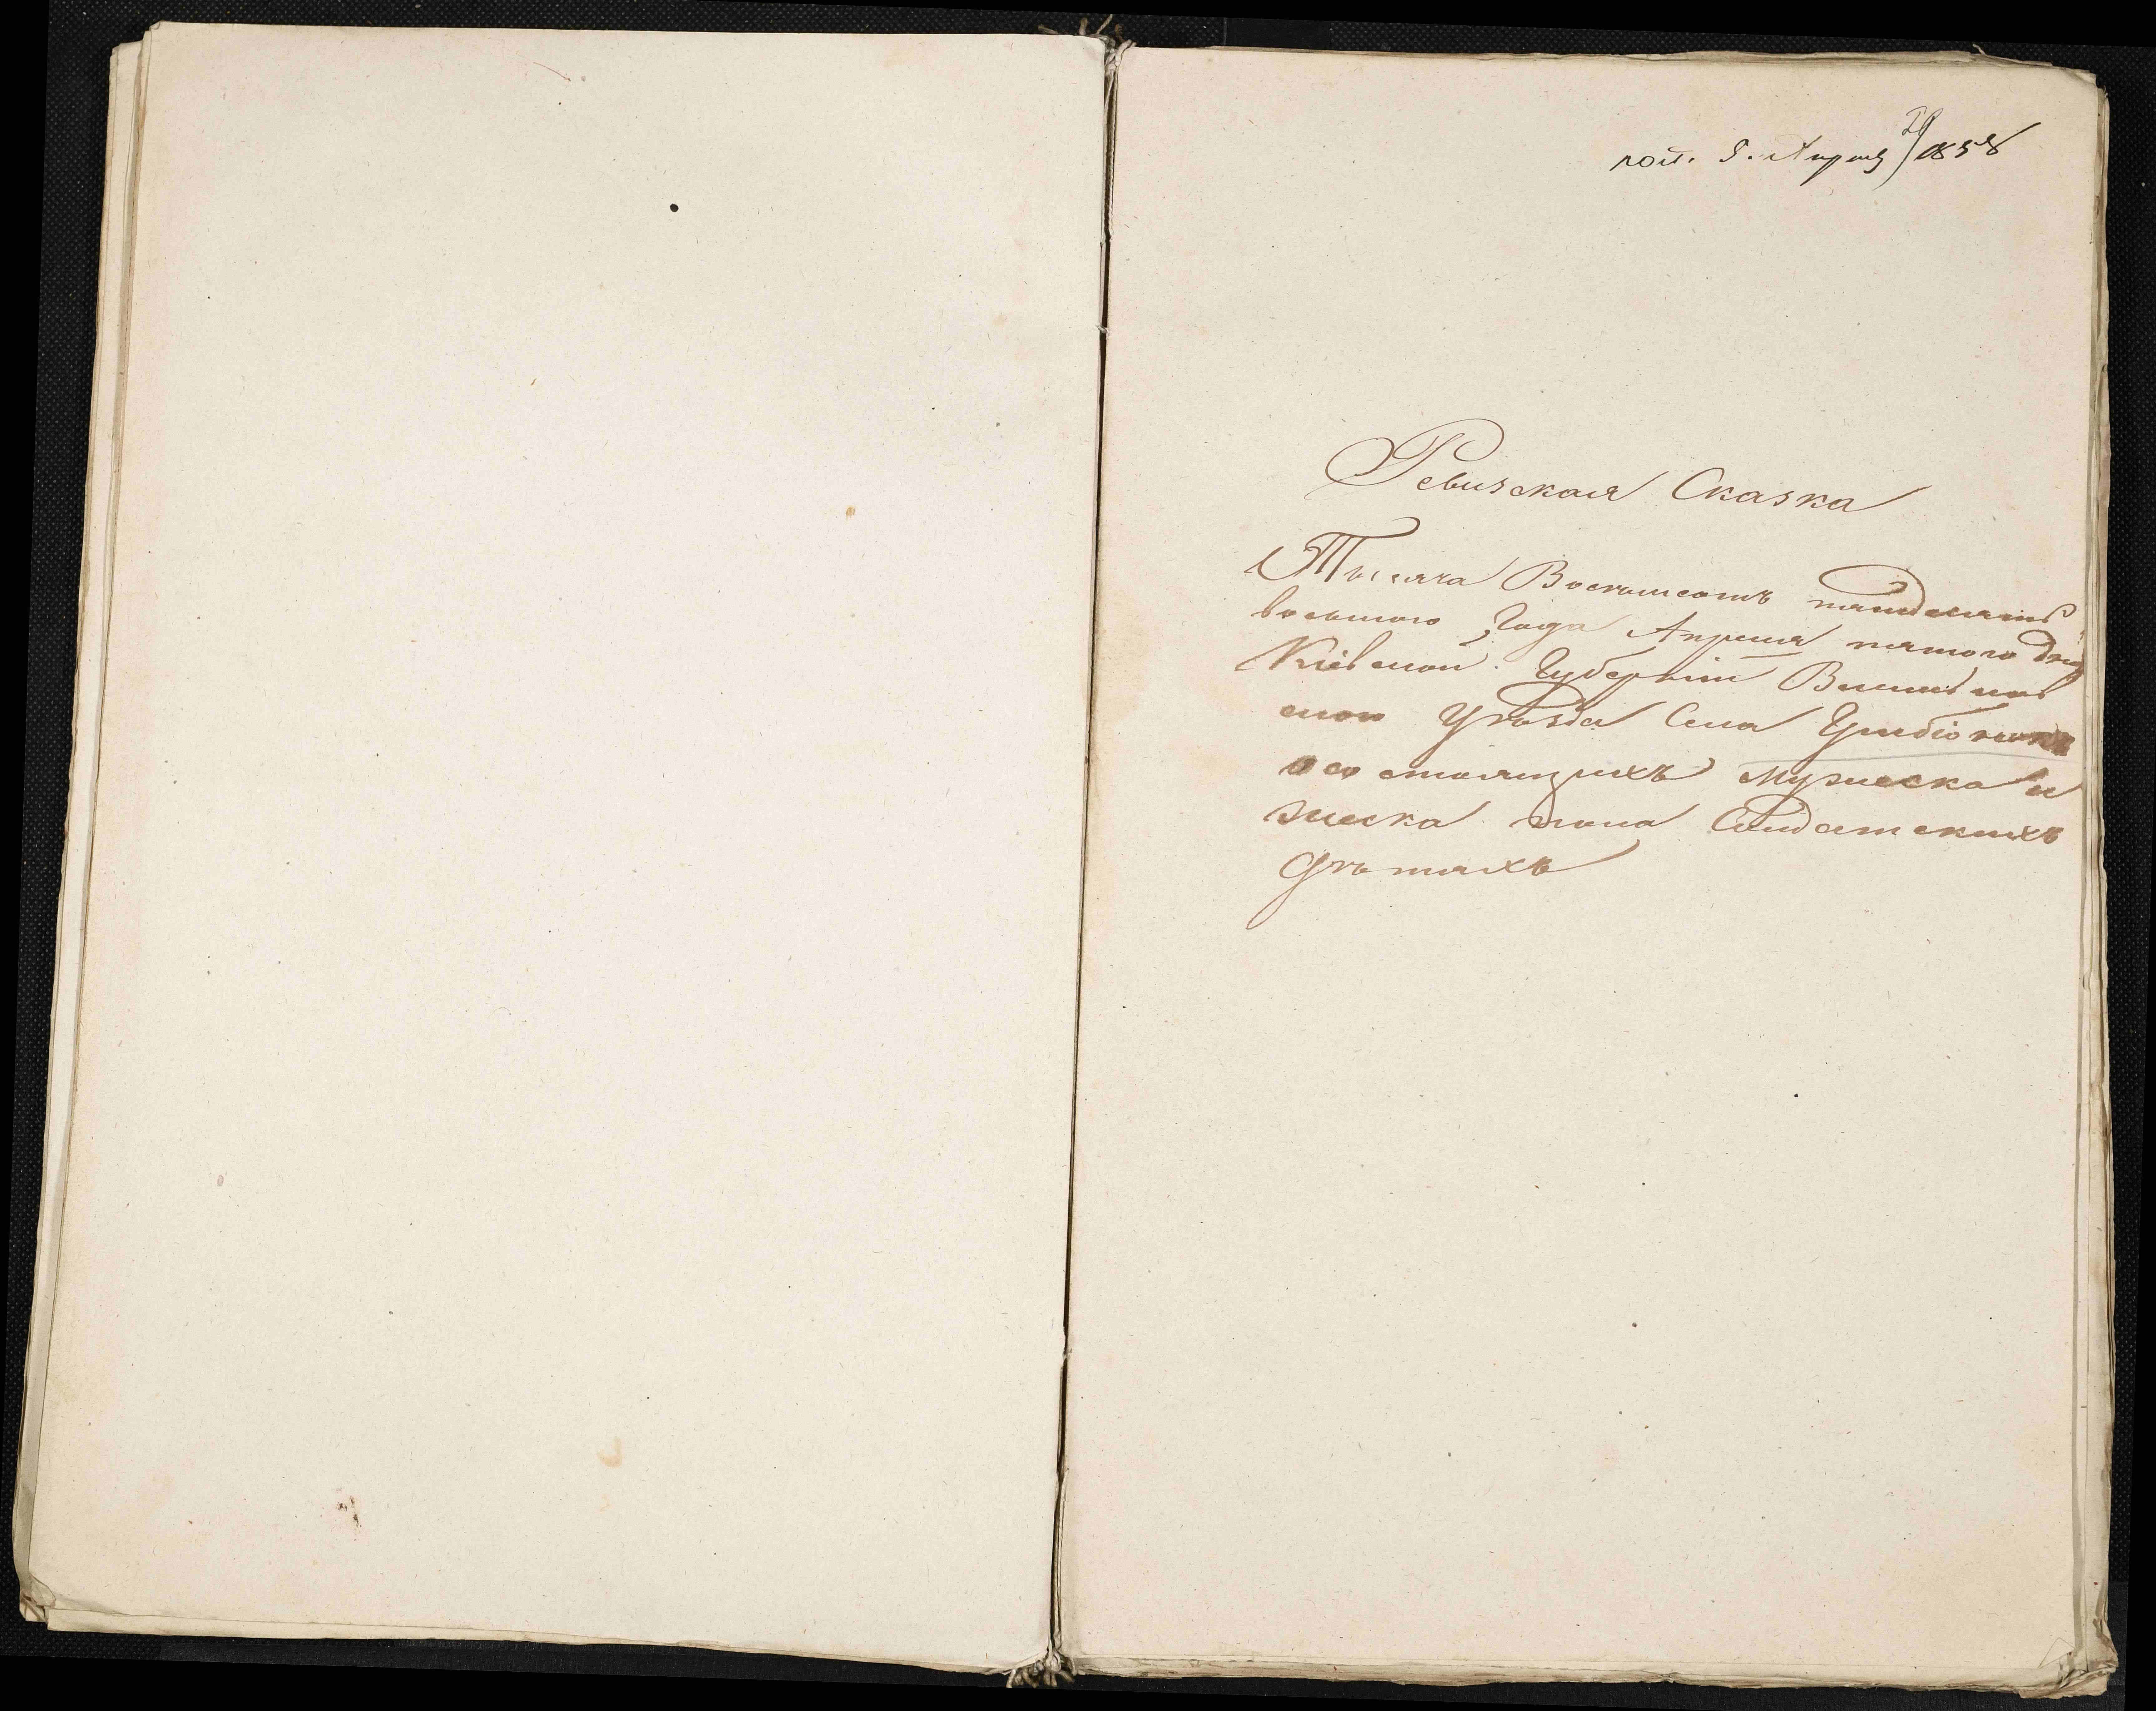 5. Апреля 1858
Ревизская Сказка
Тысяча Восемьсотъ пятдесятъ
восьмого Года Апреля пятого дня
Кіевской Губерніи
ского Уѣзда Села
о состоящихъ мужеска и
женска пола Солдатскихъ
Дѣтяхъ